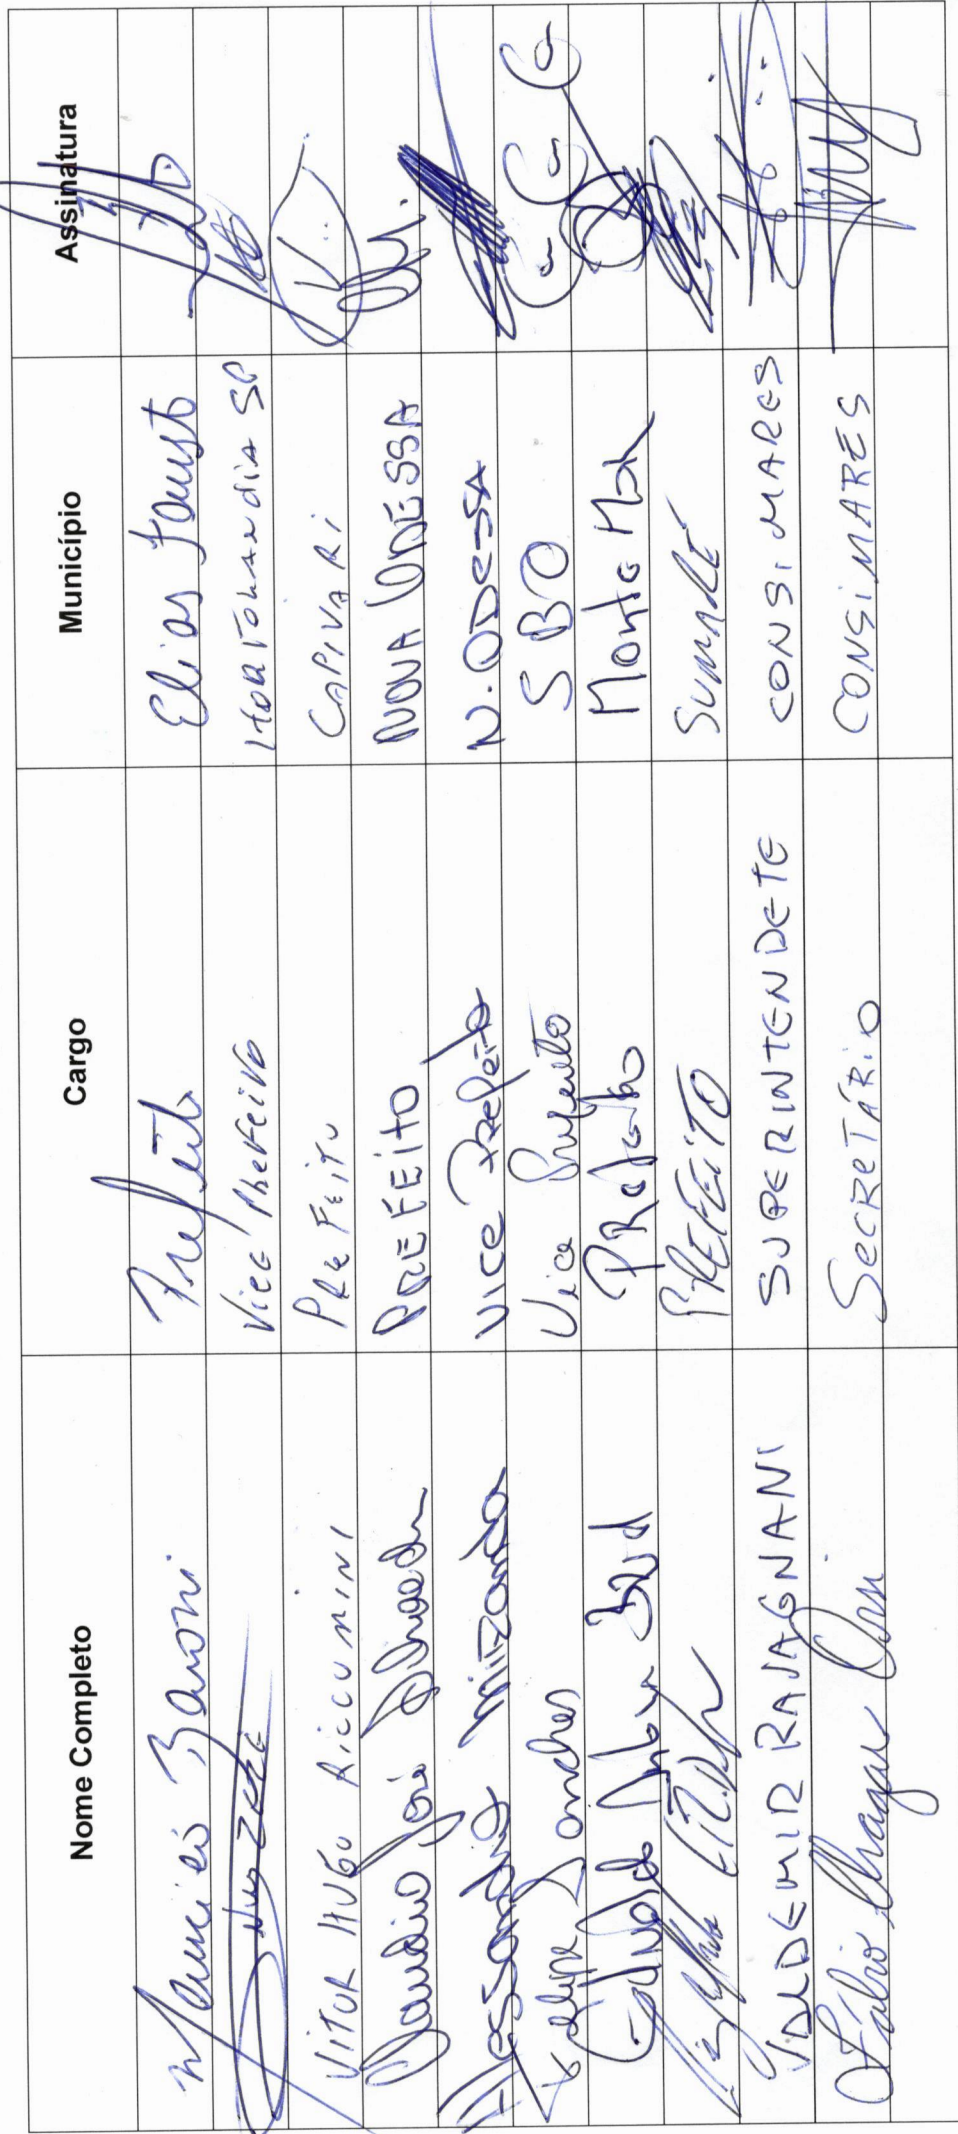 Nome Completo Cargo Município Assinatura
Mauricio Baroni Prefeito Elias Fausto
Vice Prefeito Hortolandia SP
VITOR HUGO RICCOMINI PREFEITO CAPIVARI
Claudio José Schooder PREFEITO NOVA ODESSA
Alessandro Miranda Vice Prefeito N. ODESSA
Felipe Sanches Vice Prefeito SBO
Edivaldo Antonio Brischi Prefeito Monte Mor
PREFEITO SUMARÉ
VALDEMIR RAVAGNANI SUPERINTENDETE CONSIMARES
Fábio Orsi SECRETÁRIO CONSIMARES